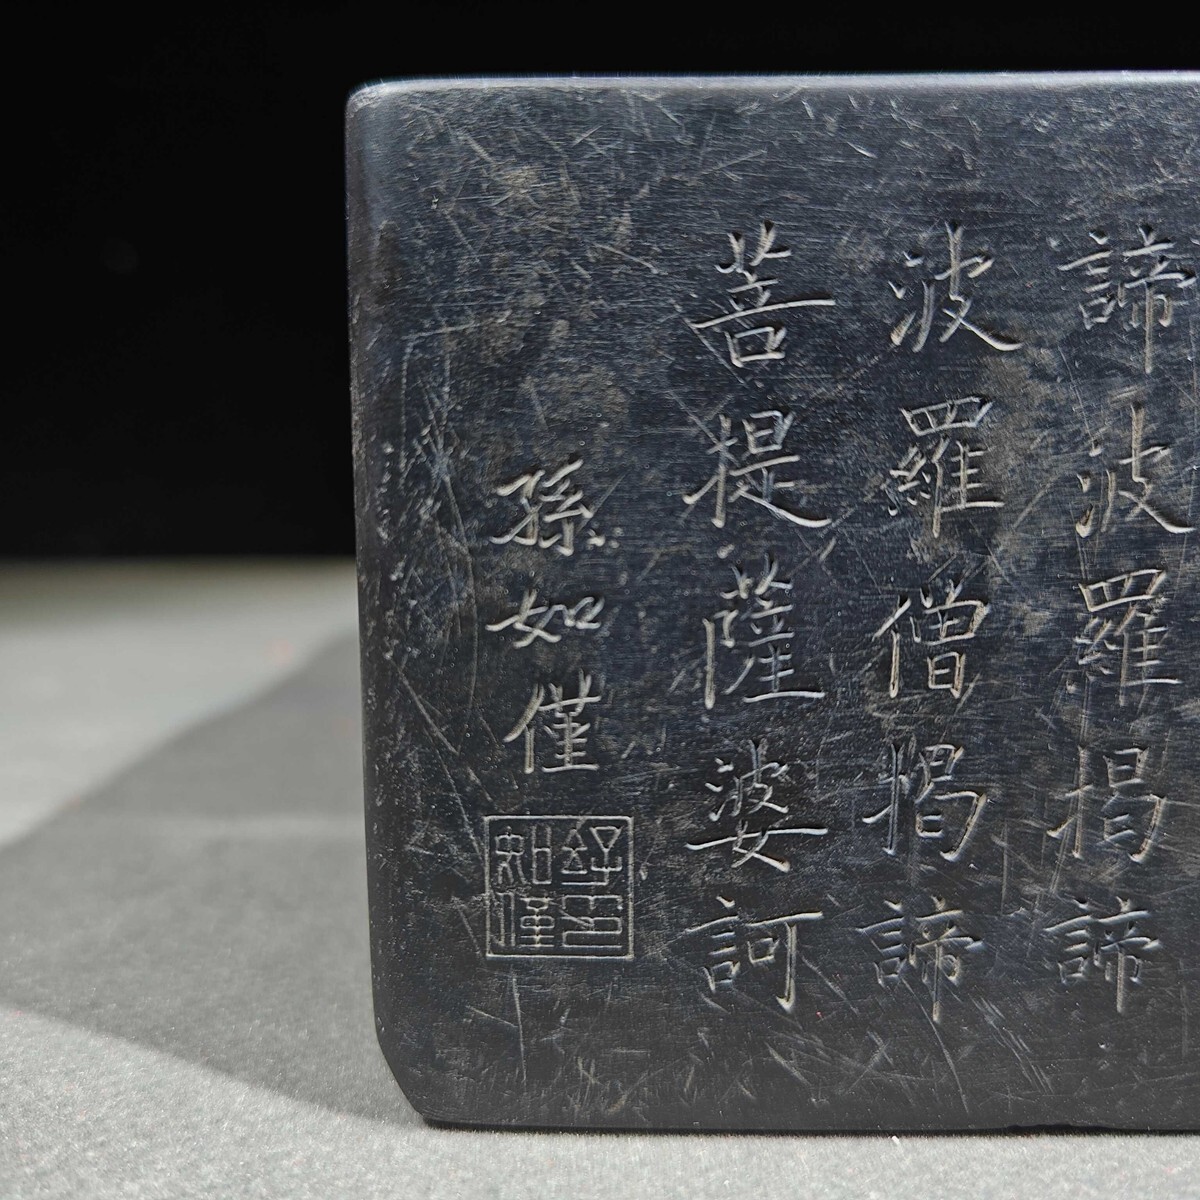 諦波羅揭諦
波羅僧揭諦
菩提薩婆訶
孫如僅
如僅